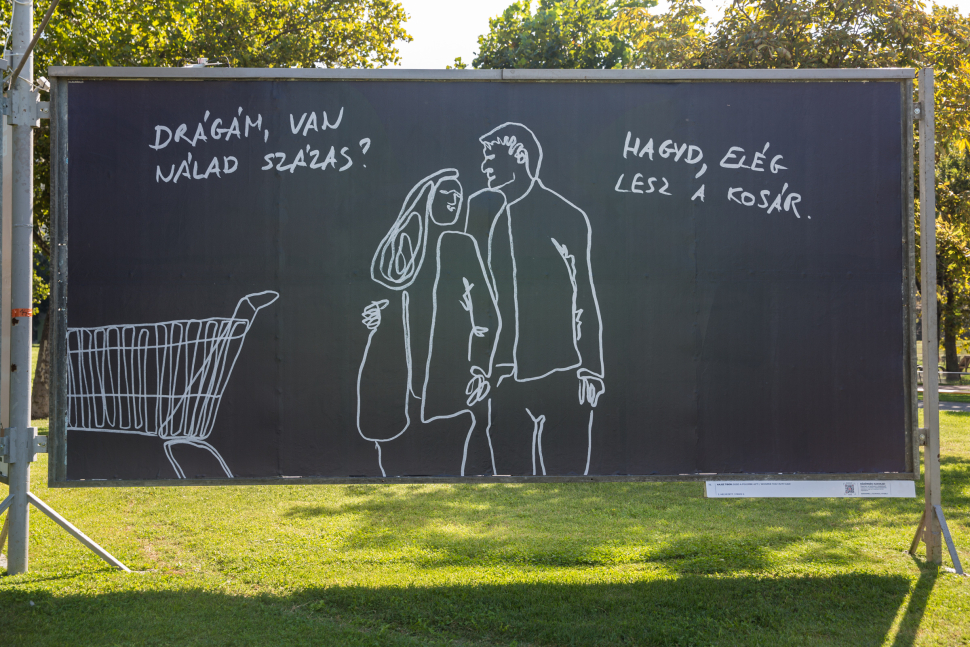 DRÁGÁM, VAN
NÁLAD SZÁZAS?
HAGYD, ELÉG
LESZ A KOSÁR.